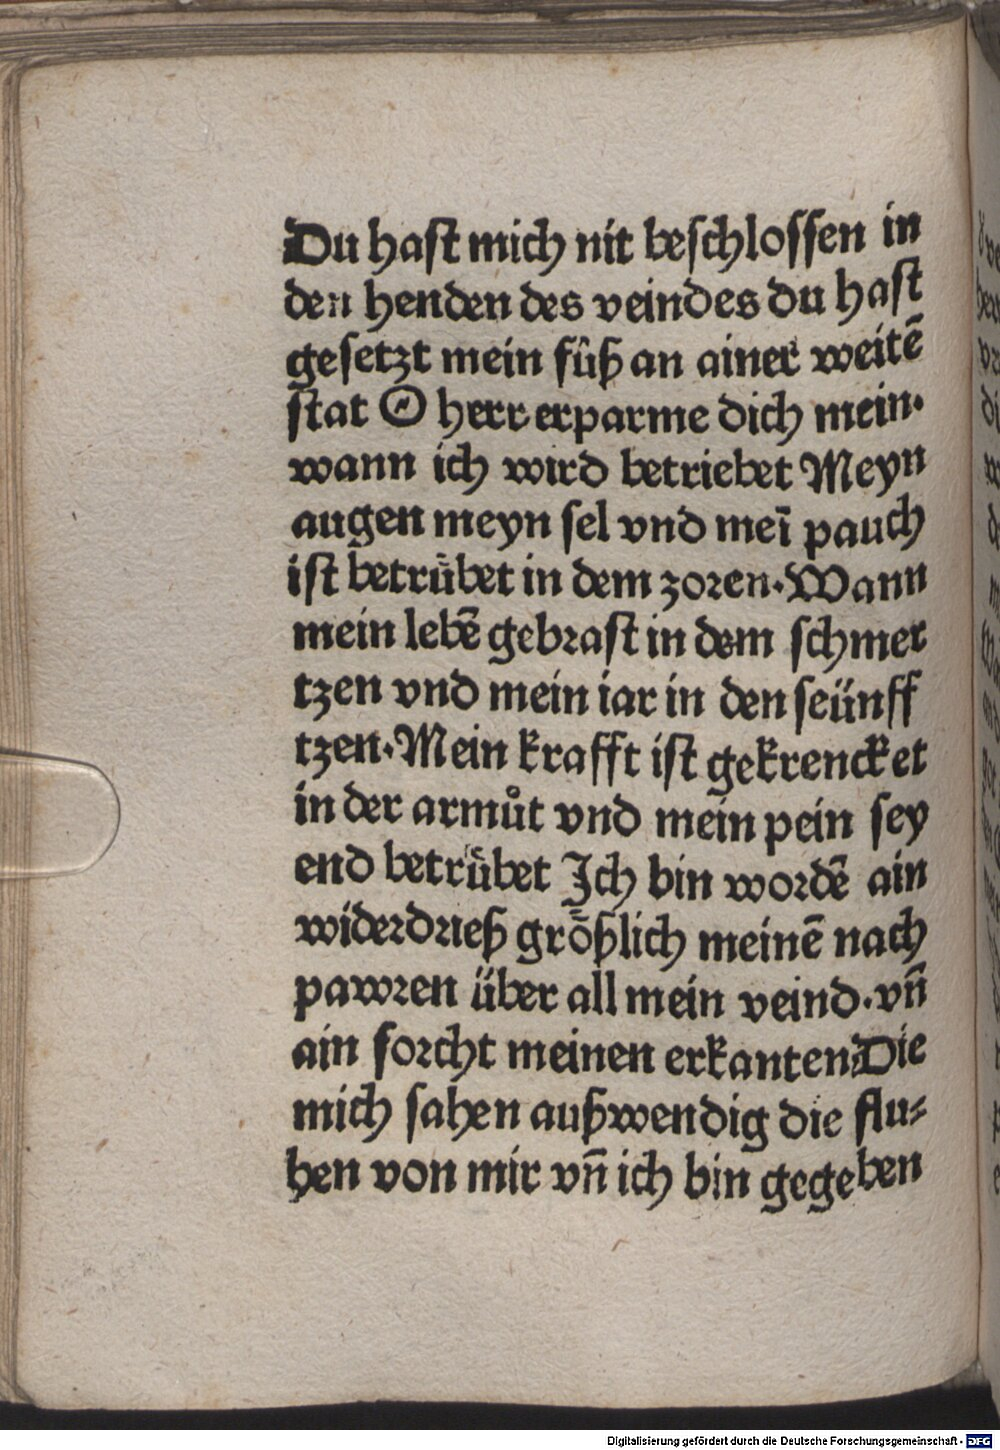 Du hast mich nit beschlossen in
den henden des veindes du hast
gesetzt mein fûß an ainer weitē
stat O herr erparme dich mein·
wann ich wird betriebet Meyn
augen meyn sel vnd meī pauch
ist betrůbet in dem zoren·Wann
mein lebē gebrast in dem schmer
tzen vnd mein iar in den seünff
tzen·Mein krafft ist gekrencket
in der armůt vnd mein pein sey
end betrůbet Ich bin wordē ain
widerdrieß grȫßlich meinē nach
pawren über all mein veind·vn̄
ain forcht meinen erkanten·Die
mich sahen außwendig die flu⸗
hen von mir vn̄ ich bin gegeben
Digitalisierung gefördert durch die Deutsche Forschungsgemeinschaft - DFG